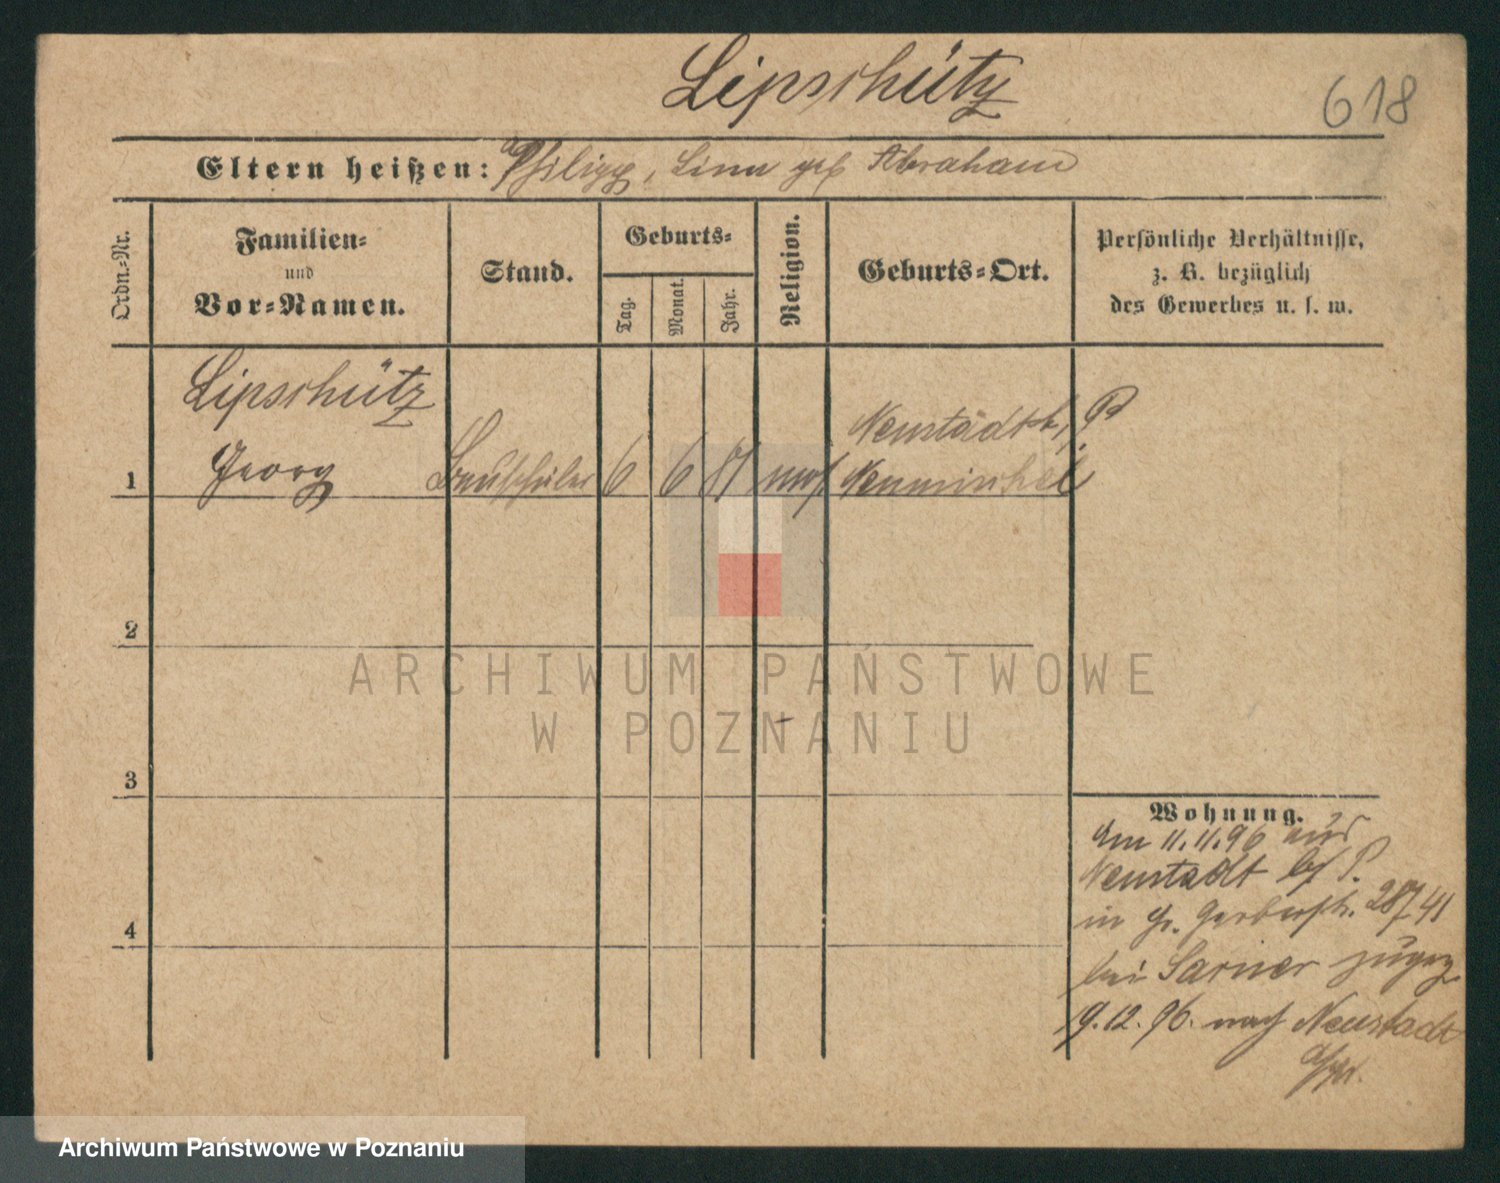 Lipschütz
618
Eltern heißen: Philipp, Lina geb Abraham
Ordn.-Nr.
Familien-
und
Vor-Namen.
Stand.
Geburts-
Tag.
Monat.
Jahr.
Religion.
Geburts-Ort.
Persönliche Verhältnisse,
z. B. bezüglich
des Gewerbes u. s. w.
Lipschütz
Neustadt
1 Georg 6 6 81 mos.
2
3
4
Wohnung.
Am 11.11.96 aus
Neustadt b/ P.
in Gr. Gerberstr. 41
bei Sarner zugez
9.12.96. nach Neustadt
ARCHIWUM PAŃSTWOWE
W POZNANIU
Archiwum Państwowe w Poznaniu